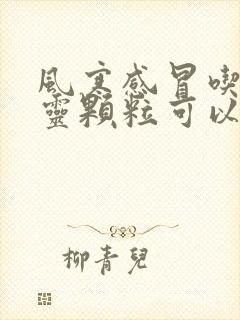 風寒感冒喫
靈顆粒可以
柳青兒